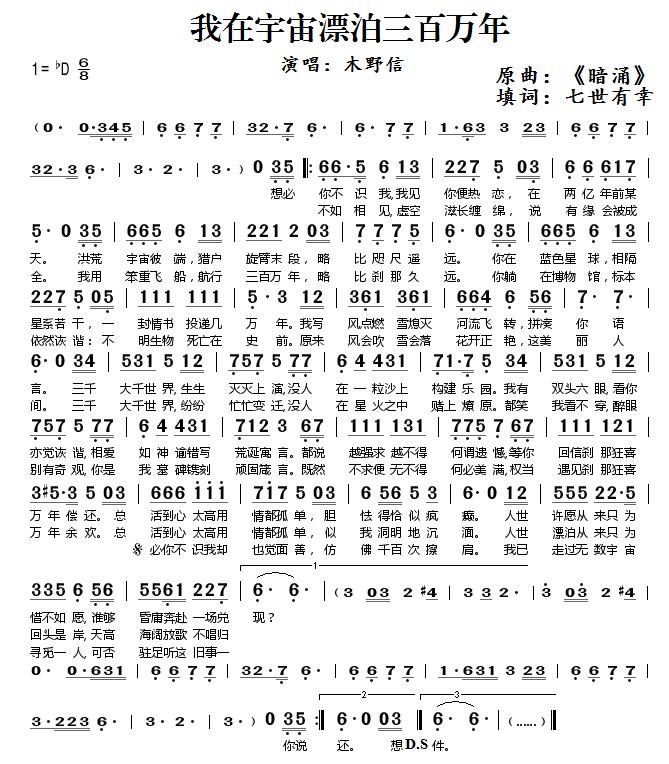 我在宇宙漂泊三百万年
1= ♭D 6/8
演唱：木野信
原曲：《暗涌》
填词：七世有幸
( 0· 0·345 | 6 6 7 7 | 32·7 | 6· 6· | 6 6 7 7 | 1·63 3 23 | 6 6 7 7 |
32·3 6· | 3· 2· | 3· ) 0 35 |: 66·5 6 13 | 227 5 03 | 6 6 617 |
想必 你不 识我,我见 你便热 恋, 在 两 亿 年前某
不如 相见,虚空 滋长缠 绵, 说 有 缘 会被成
5· 0 35 | 665 6 13 | 221 2 03 | 7 7 7 5 | 6· 0 35 | 665 6 13 |
天。 洪荒 宇宙彼 端,猎户 旋臂末 段, 略 比 咫 尺 遥 远。 你在 蓝色星 球,相隔
全。 我用 笨重飞 船,航行 三百万 年, 略 比 刹 那 久 远。 你躺 在博物 馆,标本
227 5 05 | 111 111 | 5· 3 12 | 361 361 | 664 6 56 | 7· 7· |
星系若 干, 一 封情书 投递几 万 年。我写 风点燃 雪熄灭 河流飞 转,拼凑 你 语
依然诙 谐: 不 明生物 死亡在 史 前。原来 风会吹 雪会落 花开正 艳,这美 丽 人
6· 0 34 | 531 5 12 | 757 5 77 | 6 4 431 | 71·7 5 34 | 531 5 12 |
言。 三千 大千世 界,生生 灭灭上 演,没人 在 一 粒沙上 构建 乐 园。我有 双头六 眼,看你
间。 三千 大千世 界,纷纷 忙忙变 迁,没人 在 星 火之中 赌上 燎 原。都笑 我看不 穿,醉眼
757 5 77 | 6 4 431 | 712 3 67 | 111 131 | 777 6 67 | 111 131 |
亦觉诙 谐,相爱 如 神 谕借写 荒诞寓 言。都说 越强求 越不得 何谓遗 憾,等你 回信刹 那狂喜
别有奇 观,你是 我 墓 碑镌刻 顽固箴 言。既然 不求便 无不得 何必美 满,权当 遇见刹 那狂喜
3#5·3 5 03 | 666 111 | 717 5 03 | 6 56 5 3 | 6· 0 12 | 555 22·5 |
万 年 偿 还。 总 活到心 太高用 情都孤 单, 胆 怯 得恰 似 疯 癫。 人世 许愿从 来只为
万 年 余 欢。 总 活到心 太高用 情都孤 单, 似 我 洞明 地 沉 湎。 人世 漂泊从 来只为
𝄋 必你不 识我却 也觉面 善, 仿 佛 千百 次 擦 肩。 我已 走过无 数宇 宙
1
335 6 56 | 5561 227 | 6· 6· | (3 03 2 #4 | 3 03 2 #4 | 3· 03· | 6 6 7 7 |
惜不如 愿,谁够 昏庸奔赴 一场兑 现?
回头是 岸,天高 海阔放歌 不唱归
寻觅一 人,可否 驻足听这 旧事一
0· 0·631 | 6 6 7 7 | 32·7 | 6· 6· | 6 6 7 7 | 1·631 3 23 | 6 6 7 7 |
2 3
3·223 6· | 3· 2· | 3· ) 0 35 :| 6· 0 03 | 6· 6· | (……) |
你说 还。 想 D.S 件。